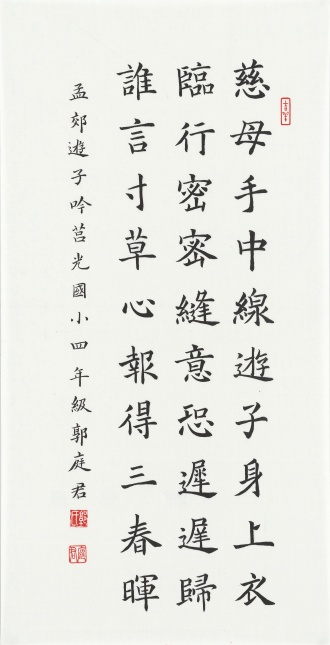 慈母手中線遊子身上衣
臨行密密縫意恐遲遲歸
誰言寸草心報得三春暉
孟郊遊子吟莒光國小四年級郭庭君